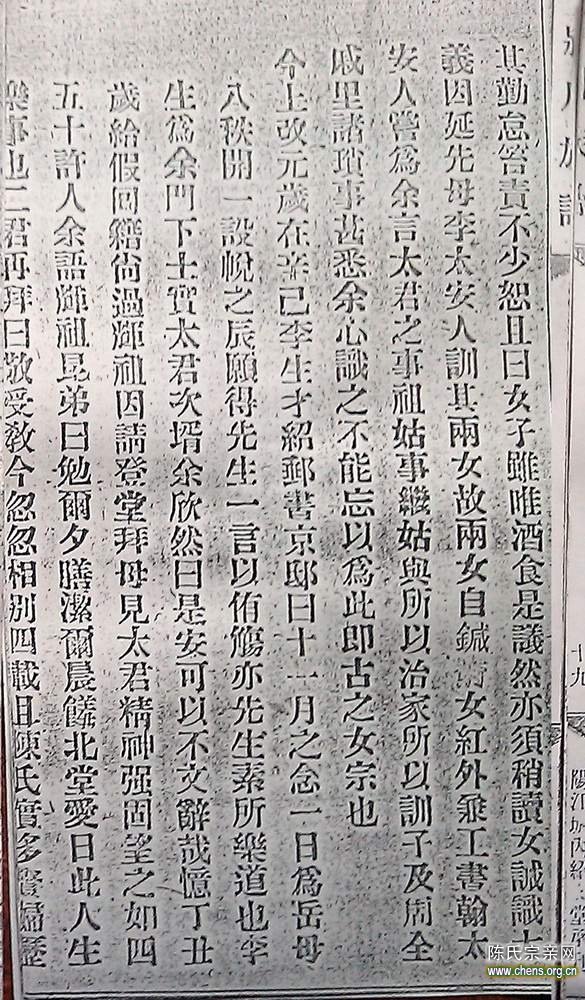 其勤怠笞責不少恕且曰女子雖唯酒食是議然亦須稍讀女誡識大
義因延先母李太安人訓其兩女故兩女自鍼黹女紅外兼工書翰太
安人嘗爲余言太君之事祖姑事繼姑與所以治家所以訓子及周全
戚里諸瑣事甚悉余心識之不能忘以爲此即古之女宗也
今上改元歲在辛巳李生才紹郵書京邸曰十一月之念一日爲岳母
八秩開一設帨之辰願得先生一言以侑觴亦先生素所樂道也李
生爲余門下士實太君次壻余欣然曰是安可以不文辭哉憶丁丑
歲給假回籍尙過輝祖因請登堂拜母見太君精神强固望之如四
五十許人余語輝祖昆弟曰勉爾夕膳潔爾晨餐北堂愛日此人生
樂事也二君再拜曰敬受敎今忽忽相別四載且陳氏實多賢婦歷
族譜
十九
陽江城內紹
堂
陈氏宗亲网
www.chens.org.cn